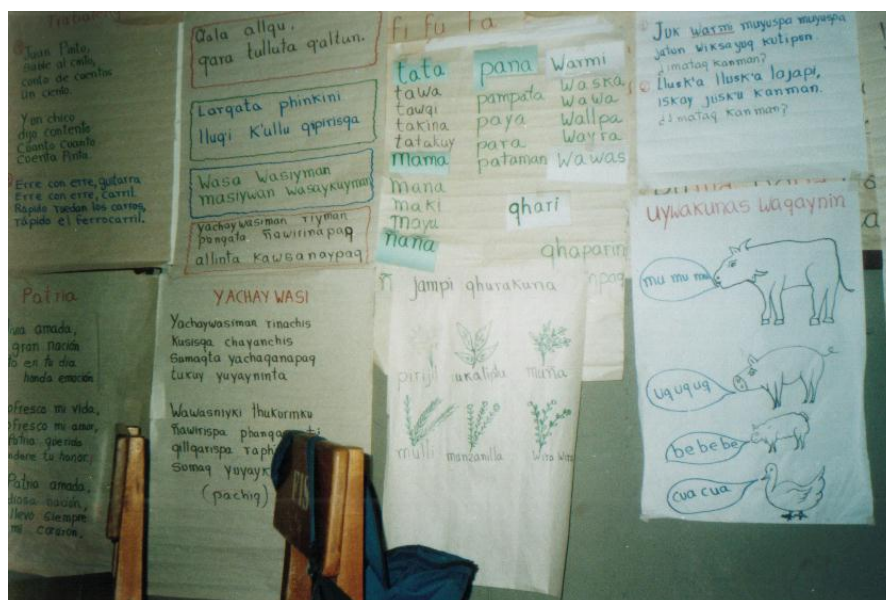 Juan Pinto,
conto de cuentos
un ciento.
Y un chico
dijo contento
Cuánto cuanto
Cuenta Pinto.
Erre con erre, guitarra
Erre con erre, carril.
Rápido ruedan los carros,
rápido el ferrocarril.
Qala allqu,
qara tulluta qaltun.
Larqata phinkini
lluqi k'ullu qipirisqa
Wasa wasiyman
masiywan wasaykuyman
yachaywasiman riyman
panqata ñawirinapaq
allinta kawsanaypaq
fi fu fa
tata
tawa
tawqi
takina
tatakuy
mama
mana
maki
maya
ñaña
pana
pampata
paya
para
pataman
Warmi
Waska
Wawa
Wallpa
Wayra
Wawas
qhari
qhaparin
Juk warmi muyuspa muyuspa
jatun wiksayuq kutipun
¿imataq kanman?
Llusk'a llusk'a lajapi,
iskay jusk'u kanman.
¿Imataq kanman?
Uywakunas waqaynin
mu mu mu
uq uq uq
be be be
cua cua
Patria
amada,
gran nación
en tu día
honda emoción
ofresco mi vida,
ofresco mi amor,
patria querida
tu honor.
Patria amada,
llevo siempre
mi corazón.
YACHAY WASI
Yachaywasiman rinachis
Kusisqa chayanchis
Sumaqta yachaqanapaq
tukuy yuyayninta
Wawasniyki thukurmku
ñawirispa phanqa
qillqarispa raphi
Sumaq yuyayk
(pachiq)
jampi qhurakuna
pirijil
iukaliptu
muña
mulli
manzanilla
wira wira